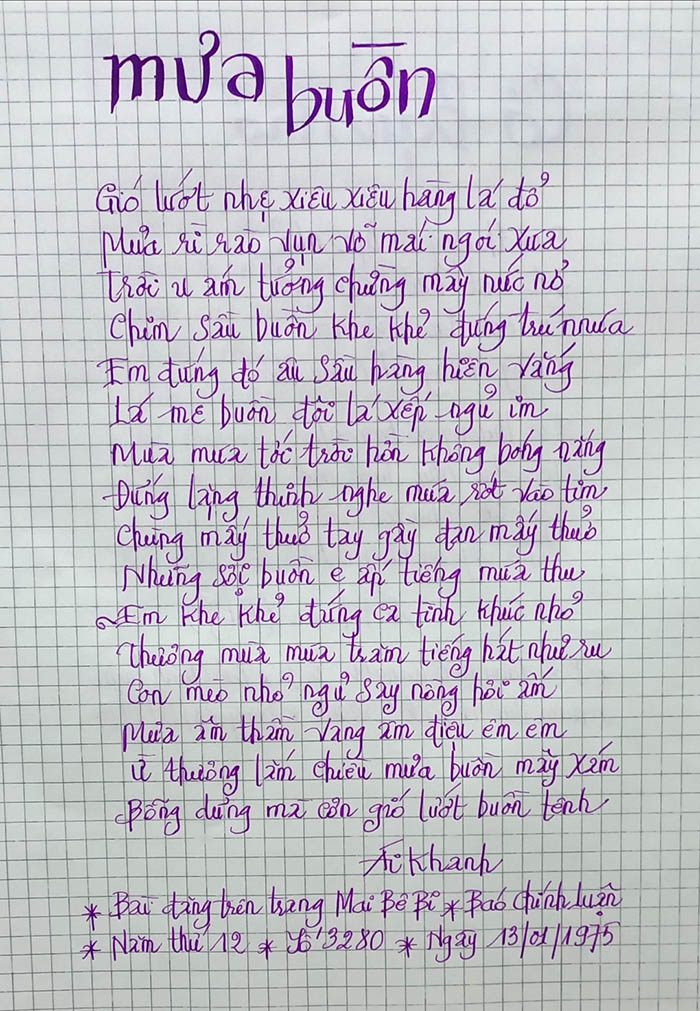 mưa buồn
Gió lướt nhẹ xiêu xiêu hàng lá đổ
Mưa rì rào vụn vỡ mái ngói xưa
Trời u ám tưởng chừng mây nức nở
Chim sầu buồn khe khẽ đứng trú mưa
Em đứng đó âu sầu hàng hiên vắng
Lá me buồn đôi lá xếp ngủ im
Mùa mưa tóc trời hờn không bóng nắng
Đứng lặng thinh nghe mưa rớt vào tim
Chừng mấy thuở tay gầy đan mấy thuở
Những sợi buồn e ấp tiếng mưa thu
Em khe khẽ đứng ca tình khúc nhỏ
Thương mùa mưa trầm tiếng hát như ru
Con mèo nhỏ ngủ say nồng hơi ấm
Mưa âm thầm vang âm điệu êm êm
Ừ thương lắm chiều mưa buồn mây xám
Bỗng dưng mà cơn gió lướt buồn tênh
Ái Khanh
* Bài đăng trên trang Mai Bê Bi * Báo Chính Luận
* Năm thứ 12 * Số 3280 * Ngày 13/01/1975